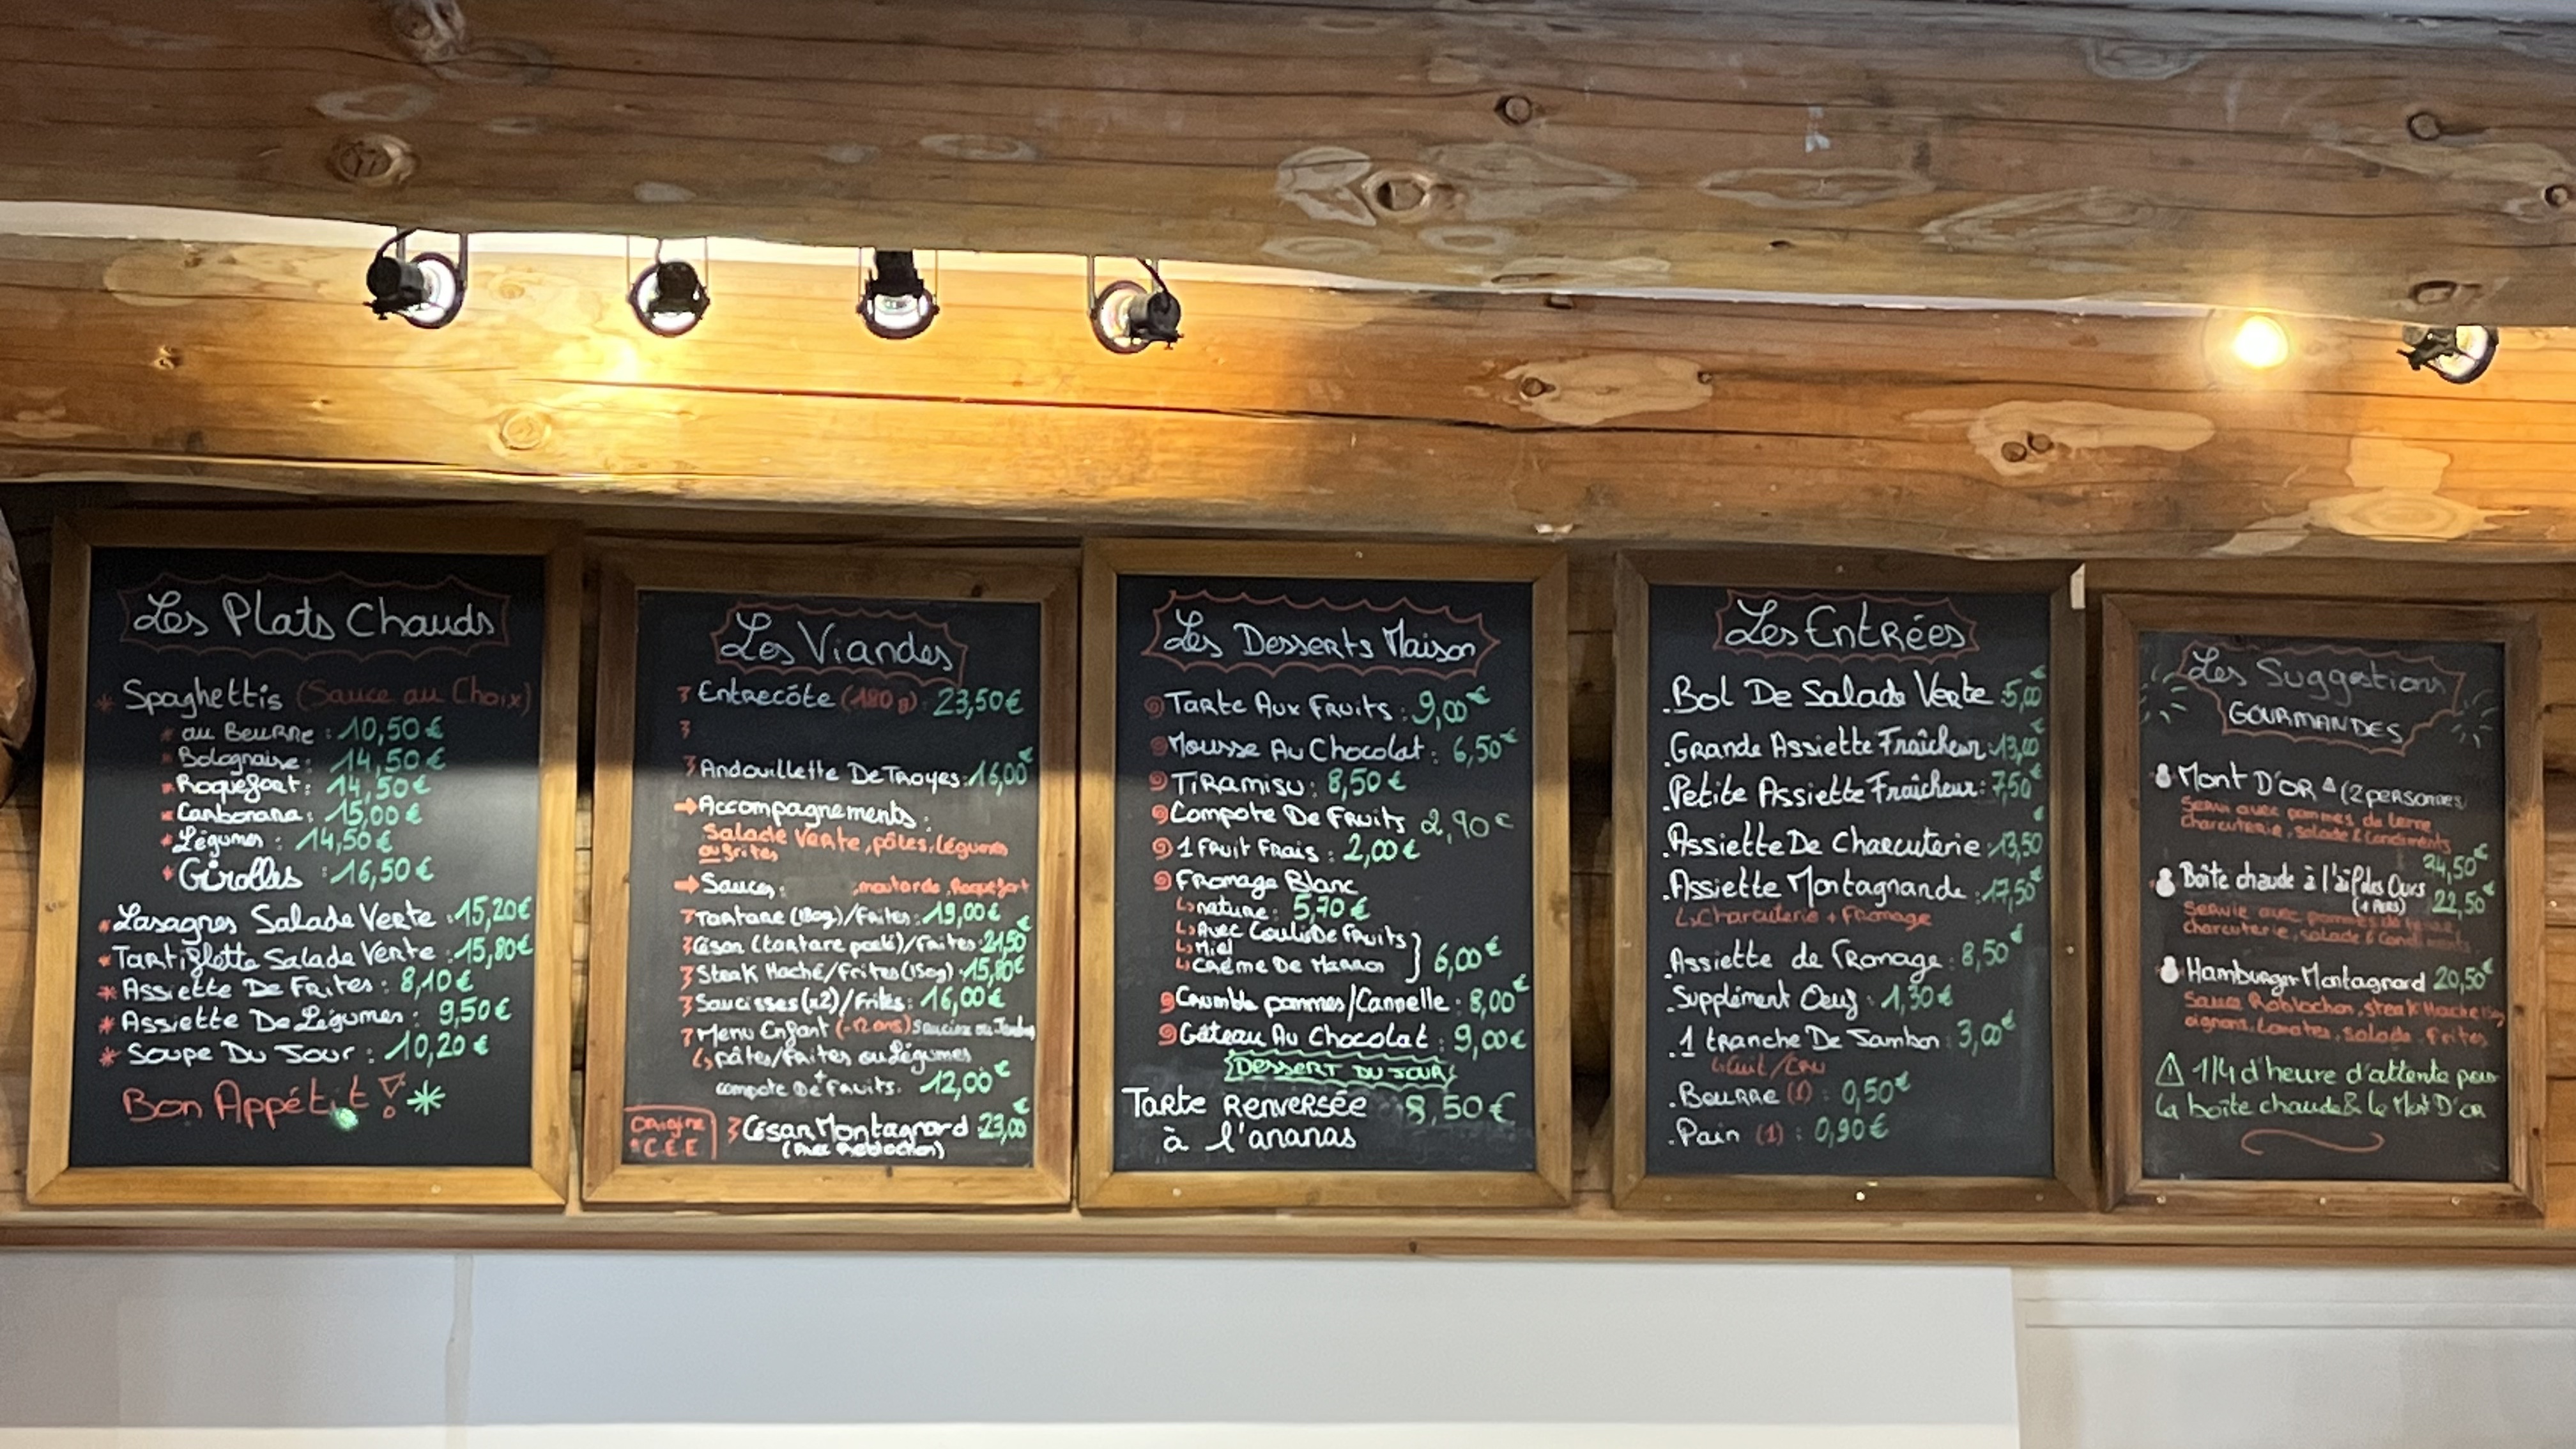 Les Plats Chauds
* Spaghettis (Sauce au Choix)
* au Beurre : 10,50 €
* Bolognaise : 14,50 €
* Roquefort : 14,50 €
* Carbonara : 15,00 €
* Légumes : 14,50 €
* Girolles : 16,50 €
* Lasagnes Salade Verte : 15,20 €
* Tartiflette Salade Verte : 15,80 €
* Assiette De Frites : 8,10 €
* Assiette De Légumes : 9,50 €
* Soupe Du Jour : 10,20 €
Bon Appétit !
Les Viandes
Entrecôte (180 g) : 23,50 €
Andouillette De Troyes : 16,00 €
→ Accompagnements :
Salade Verte, pâtes, légumes
ou frites
→ Sauces : , moutarde, Roquefort
Tartare (180g) / Frites : 19,00 €
César (tartare poêlé) / Frites : 21,50 €
Steak Haché / Frites (150g) : 15,80 €
Saucisses (x2) / Frites : 16,00 €
Menu Enfant (-12 ans) saucisse ou Jambon
↳ pâtes/frites ou Légumes
+
compote De fruits. 12,00 €
Origine
C.E.E
César Montagnard 23,00 €
(Avec Reblochon)
Les Desserts Maison
Tarte Aux Fruits : 9,00 €
Mousse Au Chocolat : 6,50 €
Tiramisu : 8,50 €
Compote De Fruits 2,90 €
1 Fruit Frais : 2,00 €
Fromage Blanc
↳ nature : 5,70 €
↳ Avec Coulis De Fruits
↳ Miel
↳ Crème De Marron } 6,00 €
Crumble pommes/Cannelle : 8,00 €
Gâteau Au Chocolat : 9,00 €
Dessert du Jour
Tarte renversée 8,50 €
à l'ananas
Les Entrées
. Bol De Salade Verte : 5,00 €
. Grande Assiette Fraîcheur : 13,00 €
. Petite Assiette Fraîcheur : 7,50 €
. Assiette De Charcuterie : 13,50 €
. Assiette Montagnarde : 17,50 €
↳ Charcuterie + Fromage
. Assiette de Fromage : 8,50 €
. Supplément Oeuf : 1,30 €
. 1 tranche De Jambon : 3,00 €
↳ Cuit/Cru
. Beurre (1) : 0,50 €
. Pain (1) : 0,90 €
Les Suggestions
GOURMANDES
Mont D'OR (2 personnes)
Servi avec pommes de terre
charcuterie, salade & Condiments
24,50 €
Boîte chaude à l'ail des Ours
(1 PERS) 22,50 €
Servie avec pommes de terre,
charcuterie, salade & Condiments
Hamburger Montagnard 20,50 €
Sauce Reblochon, steak Haché 150g
oignons, tomates, salade, Frites
⚠ 1/4 d'heure d'attente pour
la boîte chaude & le Mont D'or